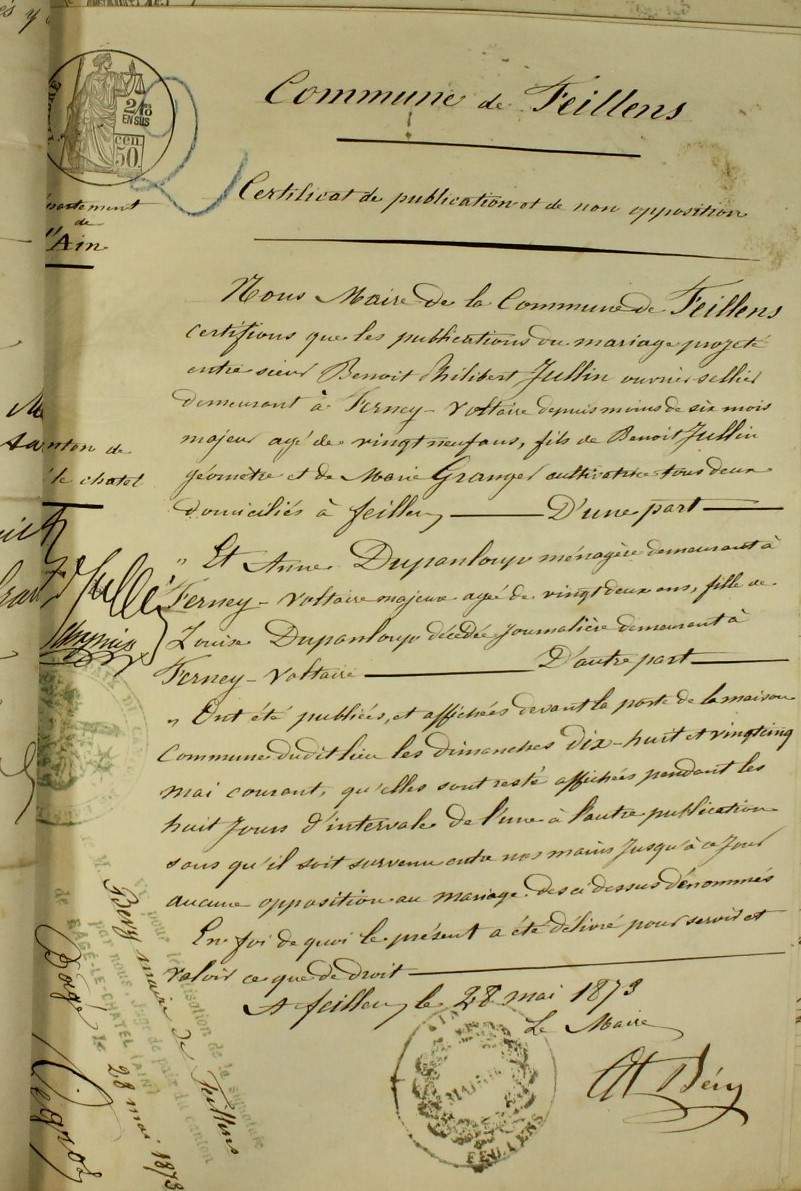 2/10
EN SUS
cen.
50.
Commune de Feillens
Certificat de publication et de non opposition
de
l'Ain
Nous Maire de la Commune de Feillens
certifions que les publications du mariage projeté
entre sieur Benoit Philibert Jullin ouvrier sellier
demeurant à Ferney-Voltaire depuis moins de six mois
majeur agé de vingt neuf ans, fils de Benoit Jullin
géomètre et de Marie Granger cultivatrice tous deux
domiciliés à feillens D'une part
" Et Anne Dupanloup ménagère demeurant à
Ferney-Voltaire majeure agée de vingt deux ans, fille de
Louise Dupanloup décédée journalière demeurant à
Ferney-Voltaire D'autre part
" Ont été publiées, et affichées devant la porte de la maison
Commune dudit lieu les dimanches dix-huit et vingt cinq
mai courant, qu'elles sont resté affichées pendant les
huit jours d'intervale de l'une à l'autre publication
sans qu'il soit survenu entre nos mains jusqu'à ce jour
aucune opposition au mariage des ci dessus dénommés
En foi de quoi le présent a été délivré pour servir et
valoir ce que de droit
A feillens le 28 mai 1873
Le Maire
At Béry
MAIRIE
FEILLENS
AIN
canton de
le chatel
Vu pour législation de la signature
de M. Bery maire de Feillens
par nous, Juge de paix du canton
de BAGÉ-LE-CHATEL (AIN)
Bagé le 28 mai 1873